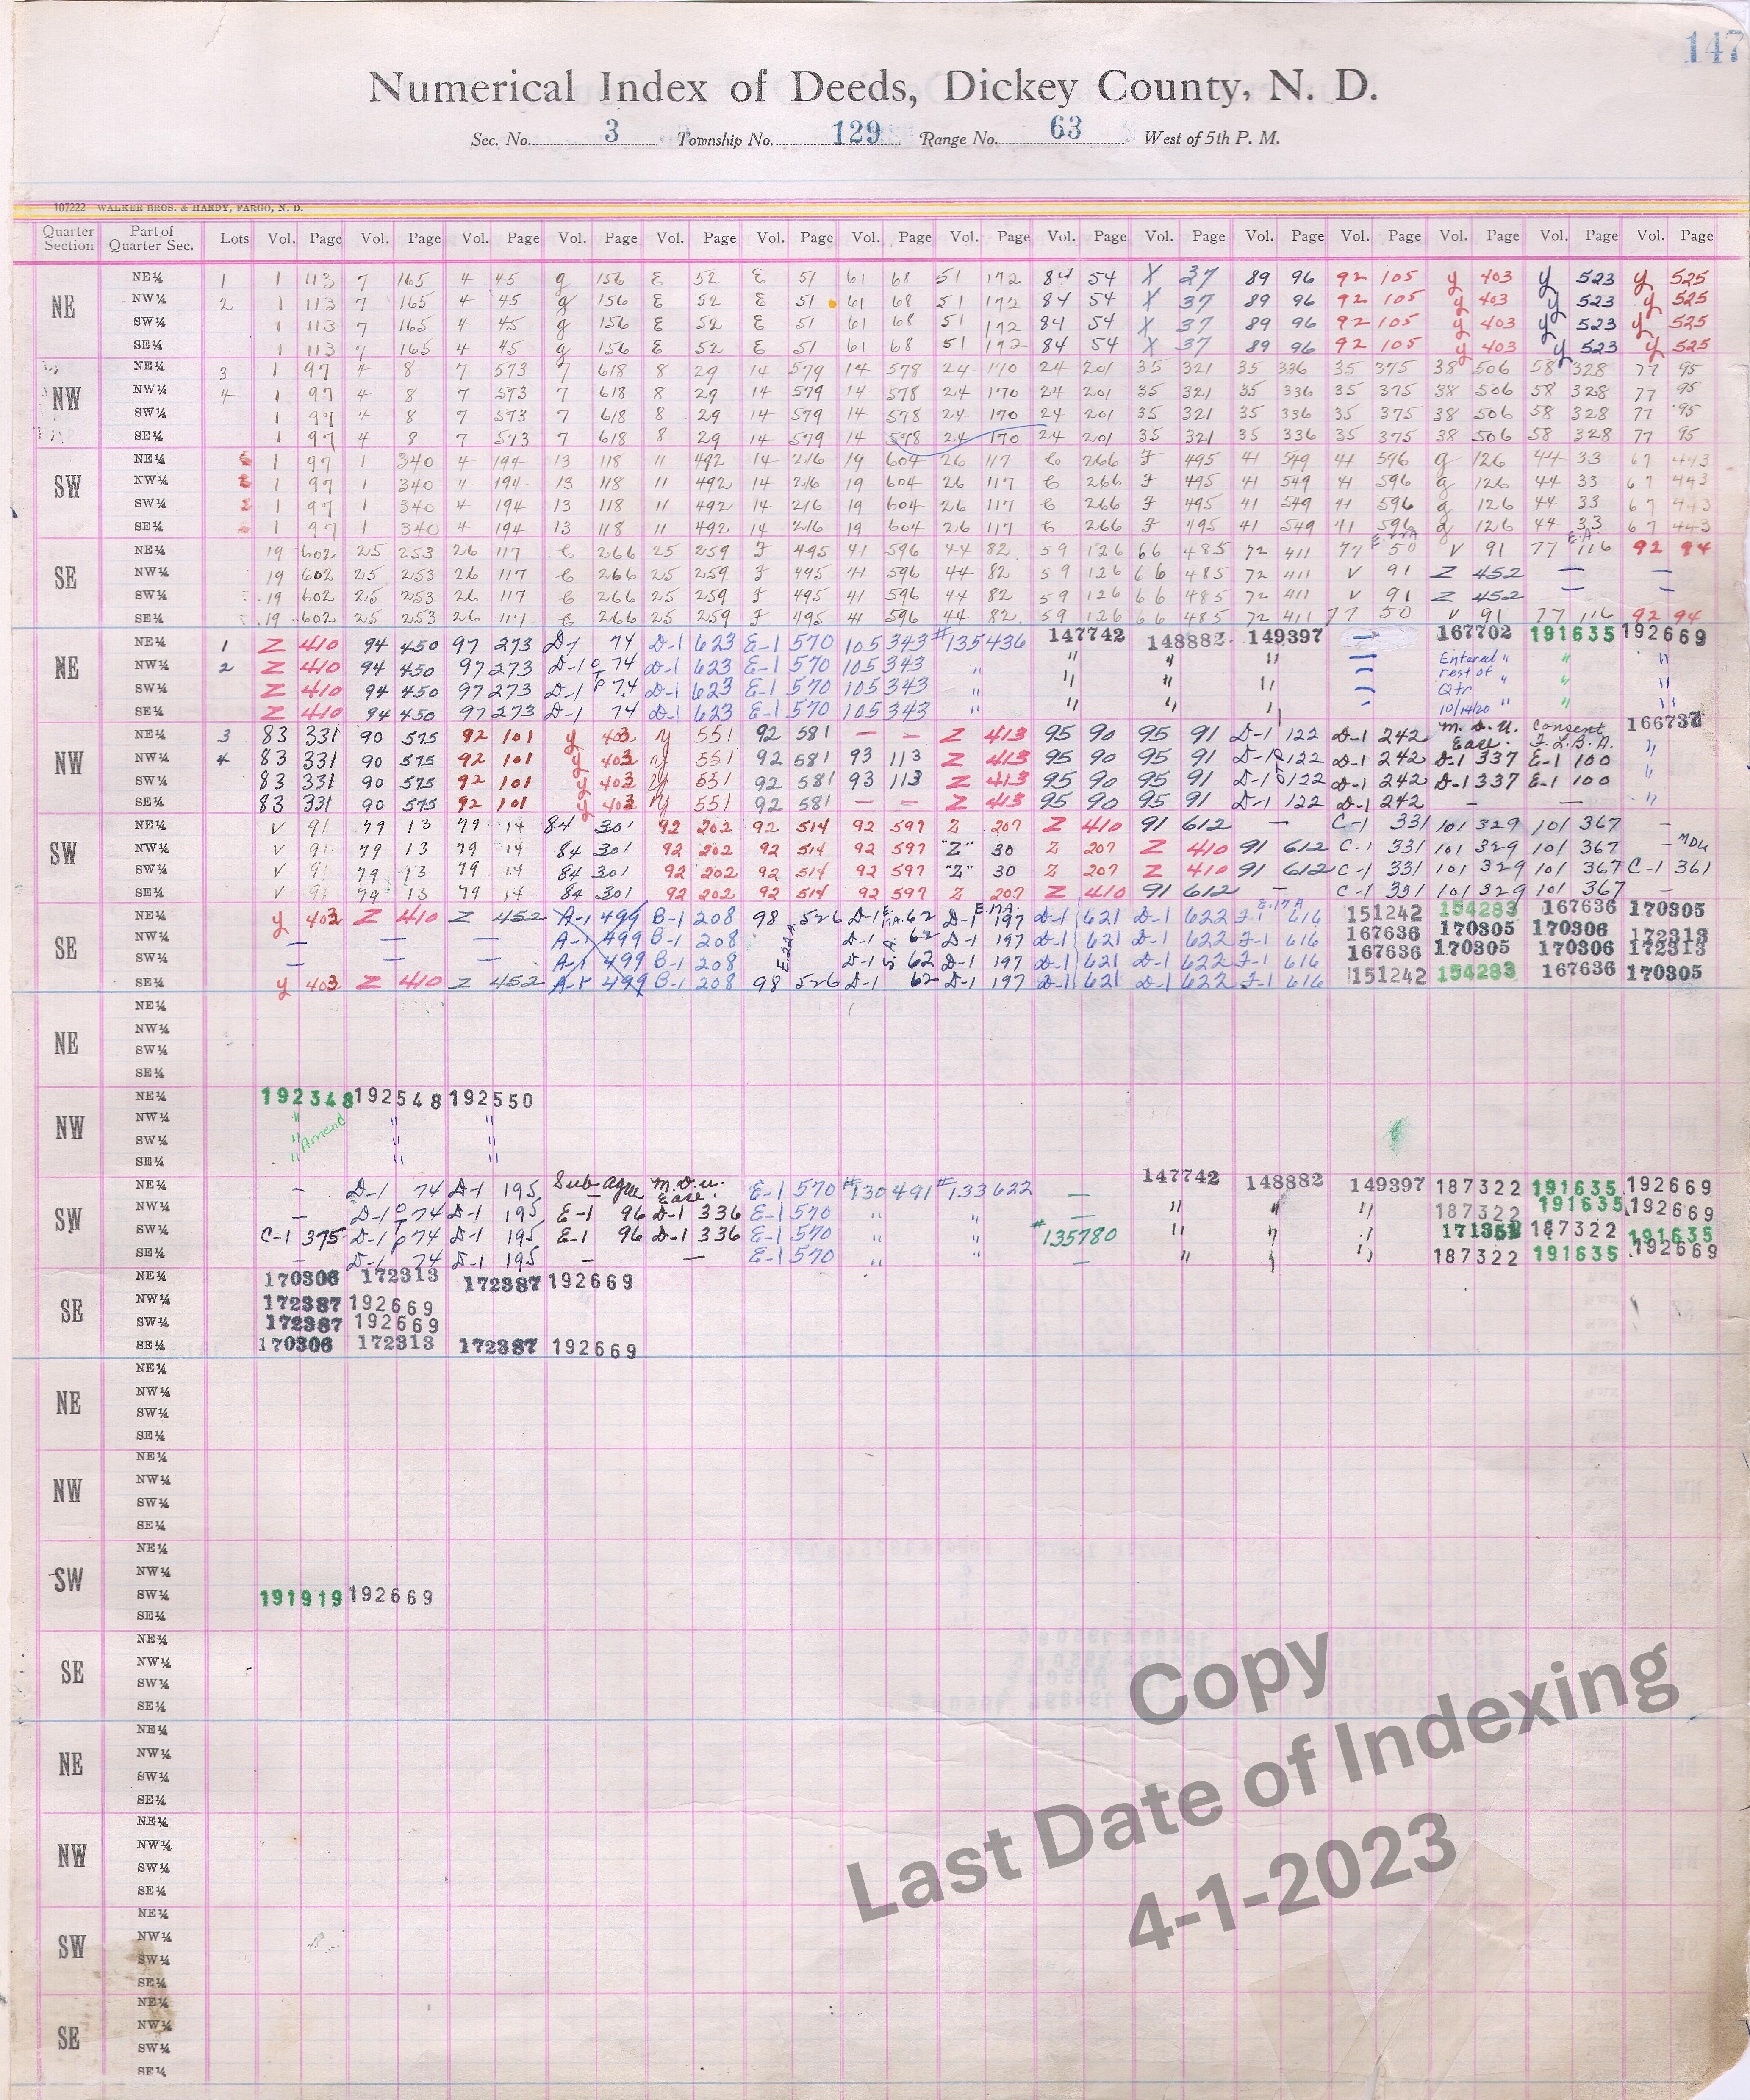 147
Numerical Index of Deeds, Dickey County, N. D.
Sec. No. 3 Township No. 129 Range No. 63 West of 5th P. M.
107222 WALKER BROS. & HARDY, FARGO, N. D.
Quarter Section Part of Quarter Sec. Lots Vol. Page Vol. Page Vol. Page Vol. Page Vol. Page Vol. Page Vol. Page Vol. Page Vol. Page Vol. Page Vol. Page Vol. Page Vol. Page Vol. Page Vol. Page
NE
NE¼ 1 1 113 7 165 4 45 g 156 E 52 E 51 61 68 51 172 84 54 X 37 89 96 92 105 y 403 y 523 y 525
NW¼ 2 1 113 7 165 4 45 g 156 E 52 E 51 61 68 51 172 84 54 X 37 89 96 92 105 y 403 y 523 y 525
SW¼ 1 113 7 165 4 45 g 156 E 52 E 51 61 68 51 172 84 54 X 37 89 96 92 105 y 403 y 523 y 525
SE¼ 1 113 7 165 4 45 g 156 E 52 E 51 61 68 51 172 84 54 X 37 89 96 92 105 y 403 y 523 y 525
NW
NE¼ 3 1 97 4 8 7 573 7 618 8 29 14 579 14 578 24 170 24 201 35 321 35 336 35 375 38 506 58 328 77 95
NW¼ 4 1 97 4 8 7 573 7 618 8 29 14 579 14 578 24 170 24 201 35 321 35 336 35 375 38 506 58 328 77 95
SW¼ 1 97 4 8 7 573 7 618 8 29 14 579 14 578 24 170 24 201 35 321 35 336 35 375 38 506 58 328 77 95
SE¼ 1 97 4 8 7 573 7 618 8 29 14 579 14 578 24 170 24 201 35 321 35 336 35 375 38 506 58 328 77 95
SW
NE¼ 1 97 1 340 4 194 13 118 11 492 14 216 19 604 26 117 C 266 F 495 41 549 41 596 g 126 44 33 67 443
NW¼ 1 97 1 340 4 194 13 118 11 492 14 216 19 604 26 117 C 266 F 495 41 549 41 596 g 126 44 33 67 443
SW¼ 1 97 1 340 4 194 13 118 11 492 14 216 19 604 26 117 C 266 F 495 41 549 41 596 g 126 44 33 67 443
SE¼ 1 97 1 340 4 194 13 118 11 492 14 216 19 604 26 117 C 266 F 495 41 549 41 596 g 126 44 33 67 443
SE
NE¼ 19 602 25 253 26 117 C 266 25 259 F 495 41 596 44 82 59 126 66 485 72 411 77 50 V 91 77 E.A. 116 92 94
NW¼ 19 602 25 253 26 117 C 266 25 259 F 495 41 596 44 82 59 126 66 485 72 411 V 91 Z 452 — —
SW¼ 19 602 25 253 26 117 C 266 25 259 F 495 41 596 44 82 59 126 66 485 72 411 V 91 Z 452 — —
SE¼ 19 602 25 253 26 117 C 266 25 259 F 495 41 596 44 82 59 126 66 485 72 411 77 50 V 91 77 116 92 94
NE
NE¼ 1 Z 410 94 450 97 273 D-1 74 D-1 623 E-1 570 105 343 #135436 147742 148882 149397 — 167702 191635 192669
NW¼ 2 Z 410 94 450 97 273 D-1 74 D-1 623 E-1 570 105 343 " " " " — Entered " " "
SW¼ Z 410 94 450 97 273 D-1 74 D-1 623 E-1 570 105 343 " " " " — rest of Qtr " " "
SE¼ Z 410 94 450 97 273 D-1 74 D-1 623 E-1 570 105 343 " " " " — 10/14/20 " " "
NW
NE¼ 3 83 331 90 575 92 101 y 403 y 551 92 581 — — Z 413 95 90 95 91 D-1 122 D-1 242 M.D.U. Ease. Consent F.L.B.A. 166737
NW¼ 4 83 331 90 575 92 101 y 403 y 551 92 581 93 113 Z 413 95 90 95 91 D-1 122 D-1 242 D-1 337 E-1 100 "
SW¼ 83 331 90 575 92 101 y 403 y 551 92 581 93 113 Z 413 95 90 95 91 D-1 122 D-1 242 D-1 337 E-1 100 "
SE¼ 83 331 90 575 92 101 y 403 y 551 92 581 — — Z 413 95 90 95 91 D-1 122 D-1 242 — — "
SW
NE¼ V 91 79 13 79 14 84 301 92 202 92 514 92 597 Z 207 Z 410 91 612 — C-1 331 101 329 101 367 —
NW¼ V 91 79 13 79 14 84 301 92 202 92 514 92 597 "Z" 30 Z 207 Z 410 91 612 C-1 331 101 329 101 367 — MDU
SW¼ V 91 79 13 79 14 84 301 92 202 92 514 92 597 "Z" 30 Z 207 Z 410 91 612 C-1 331 101 329 101 367 C-1 361
SE¼ V 91 79 13 79 14 84 301 92 202 92 514 92 597 Z 207 Z 410 91 612 — C-1 331 101 329 101 367 —
SE
NE¼ y 403 Z 410 Z 452 A-1 499 B-1 208 98 526 D-1 62 D-1 197 D-1 621 D-1 622 F-1 616 151242 154283 167636 170305
NW¼ — — — A-1 499 B-1 208 D-1 62 D-1 197 D-1 621 D-1 622 F-1 616 167636 170305 170306 172313
SW¼ — — — A-1 499 B-1 208 D-1 62 D-1 197 D-1 621 D-1 622 F-1 616 167636 170305 170306 172313
SE¼ y 403 Z 410 Z 452 A-1 499 B-1 208 98 526 D-1 62 D-1 197 D-1 621 D-1 622 F-1 616 151242 154283 167636 170305
NE
NE¼
NW¼
SW¼
SE¼
NW
NE¼ 192348 192548 192550
NW¼ " " "
SW¼ " Amend " "
SE¼ " " "
SW
NE¼ — D-1 74 D-1 195 Sub agree M.D.U. Ease. E-1 570 #130491 #133622 — 147742 148882 149397 187322 191635 192669
NW¼ — D-1 74 D-1 195 E-1 96 D-1 336 E-1 570 " " — " " " 187322 191635 192669
SW¼ C-1 375 D-1 74 D-1 195 E-1 96 D-1 336 E-1 570 " " #135780 " " " 187322 191635
SE¼ — D-1 74 D-1 195 — — E-1 570 " " — " " " 187322 191635 192669
SE
NE¼ 170306 172313 172387 192669
NW¼ 172387 192669
SW¼ 172387 192669
SE¼ 170306 172313 172387 192669
NE
NE¼
NW¼
SW¼
SE¼
NW
NE¼
NW¼
SW¼
SE¼
SW
NE¼
NW¼
SW¼ 191919 192669
SE¼
SE
NE¼
NW¼
SW¼
SE¼
NE
NE¼
NW¼
SW¼
SE¼
NW
NE¼
NW¼
SW¼
SE¼
SW
NE¼
NW¼
SW¼
SE¼
SE
NE¼
NW¼
SW¼
SE¼
Copy
Last Date of Indexing
4-1-2023